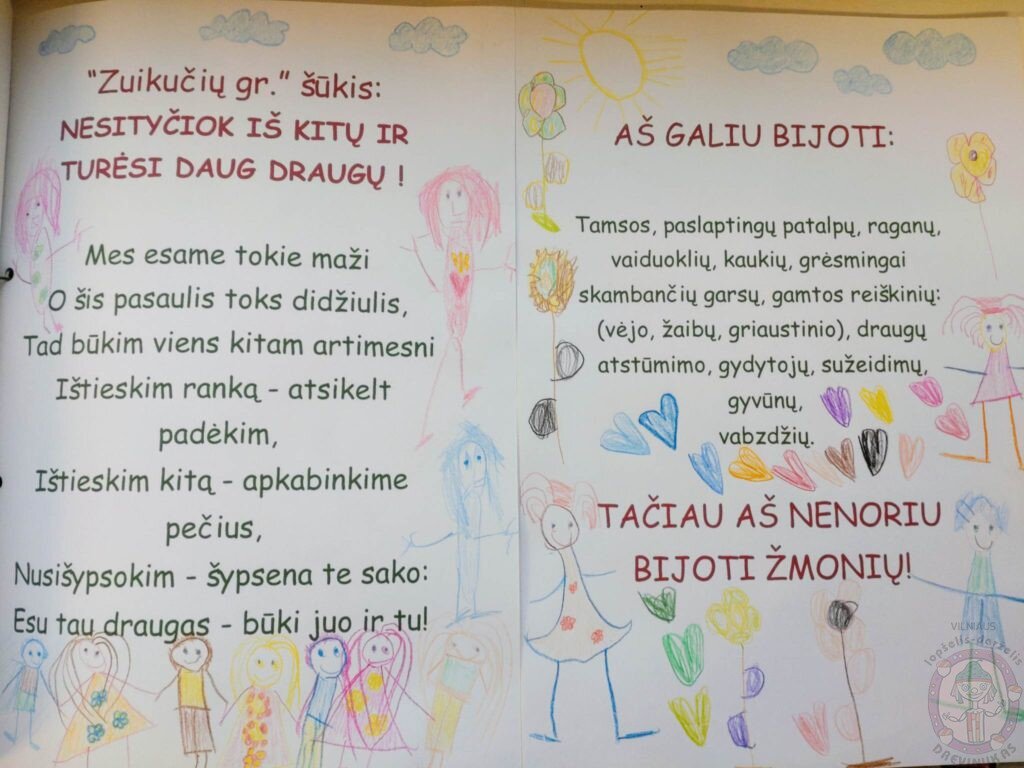 "Zuikučių gr." šūkis:
NESITYČIOK IŠ KITŲ IR
TURĖSI DAUG DRAUGŲ !
Mes esame tokie maži
O šis pasaulis toks didžiulis,
Tad būkim viens kitam artimesni
Ištieskim ranką - atsikelt
padėkim,
Ištieskim kitą - apkabinkime
pečius,
Nusišypsokim - šypsena te sako:
Esu tau draugas - būki juo ir tu!
AŠ GALIU BIJOTI:
Tamsos, paslaptingų patalpų, raganų,
vaiduoklių, kaukių, grėsmingai
skambančių garsų, gamtos reiškinių:
(vėjo, žaibų, griaustinio), draugų
atstūmimo, gydytojų, sužeidimų,
gyvūnų,
vabzdžių.
TAČIAU AŠ NENORIU
BIJOTI ŽMONIŲ!
VILNIAUS
lopšelis-darželis
DREVINUKAS